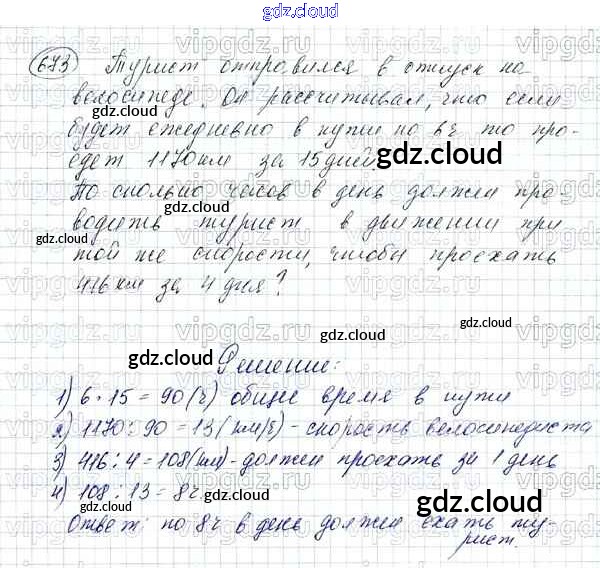 gdz.cloud
673 Турист отправился в отпуск на
велосипеде. Он рассчитывал, что если
gdz.cloud
будет ежедневно в пути по 6ч то про-
едет 1170км за 15дней.
gdz.cloud
По сколько часов в день должен про-
gdz.cloud
водить турист в движении при
gdz.cloud
той же скорости, чтобы проехать
416км за 4 дня?
gdz.cloud
gdz.cloud
Решение:
gdz.cloud
1) 6 · 15 = 90(ч) общее время в пути
2) 1170 : 90 = 13(км/ч) - скорость велосипедиста
gdz.cloud
3) 416 : 4 = 108(км) - должен проехать за 1 день
4) 108 : 13 = 8ч
gdz.cloud
gdz.cloud
Ответ: по 8ч в день должен ехать ту-
рист.
gdz.cloud